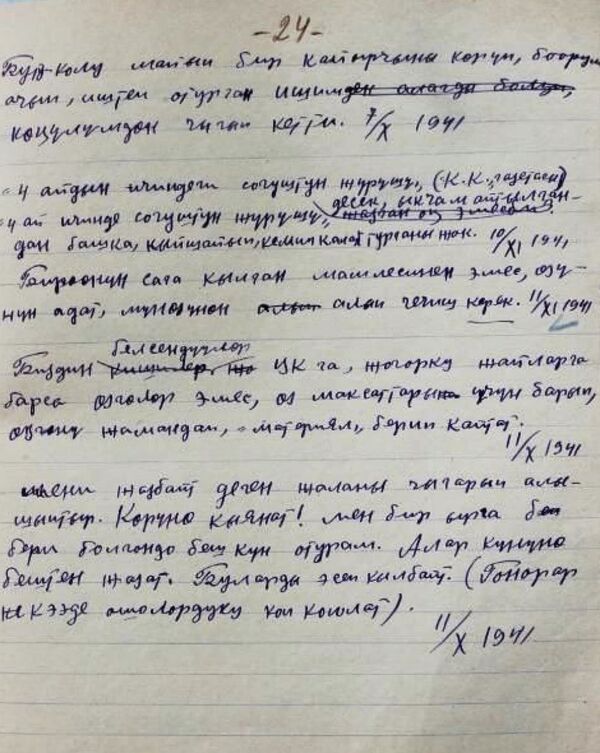 -24-
Бут-колу майып бир кайырчыны көрүп, боорум
ачып, иштеп отурган ишимден алагды болуп,
көңүлүмдөн чыгып кетти. 7/X 1941
"4 айдын ичиндеги согуштун жүрүшү" (К.К. газетасы)
"4 ай ичинде согуштун жүрүшү" десек, ыкчам айтылган-
жазган оң эмеспи.
дан башка, кыйшайып, кемип калат турганы жок. 10/XI 1941
Бирөөнүн сага кылган мамлесинен эмес, өзү-
нүн адат, мүнөзүнөн алып алаи чечиш керек. 11/XI 1941
белсендүүлөр
Биздин кишилер, жо ЦК га, жогорку жайларга
барса өзгөлөр эмес, өз максаттары үчүн барып,
өзгөнү жамандап, "материял" берип кайтат.
11/X 1941
мени жазбайт деген жаланы чыгарып алы-
шыптыр. Көрүнө кыянат! мен бир ырга
бери болгондо беш күн отурам. Алар күнүнө
бештен жазат. Буларды эсеп кылбайт. (Гонорар
кээде ошолордуку көп кошлат).
11/X 1941